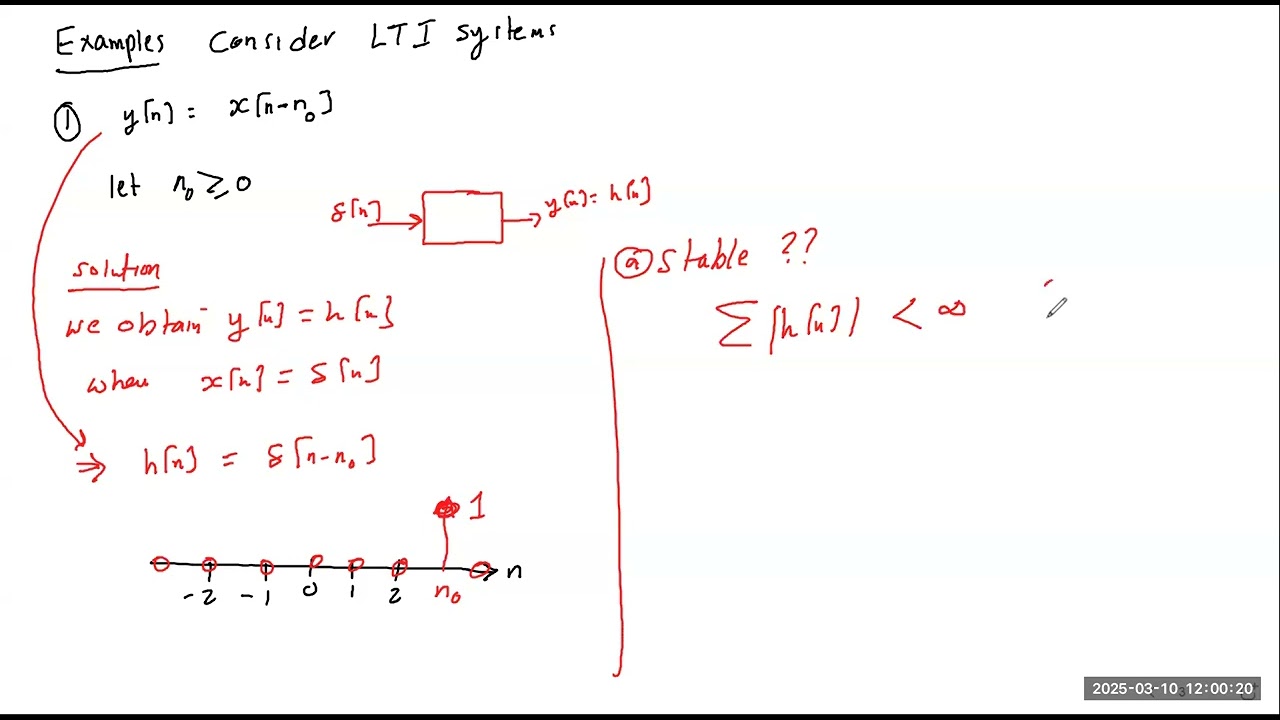 Examples Consider LTI systems
① y[n] = x[n-n₀]
let n₀ ≥ 0
δ[n] y[n] = h[n]
solution
we obtain y[n] = h[n]
when x[n] = δ[n]
⇒ h[n] = δ[n-n₀]
1
-2 -1 0 1 2 n₀ n
ⓐ stable ??
∑ |h[n]| < ∞
2025-03-10 12:00:20